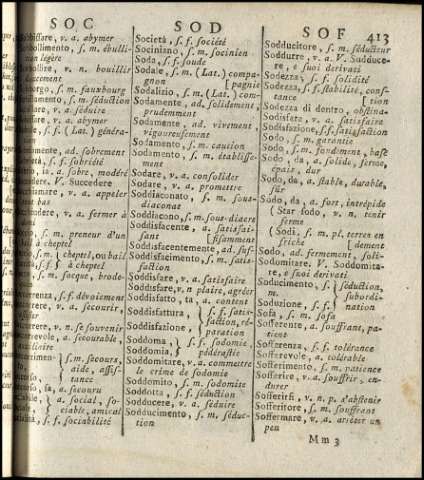 SOC
SOD
SOF
413
v. a. abymer
s. m. ébulli-
tion légère
v. n. bouillir
doucement
s. m. fauxbourg
s. m. séduction
v. a. séduire
v. a. abymer
s. f. (Lat.) généra-
ad. sobrement
s. f. sobriété
ia, a. sobre, modéré
V. Succedere
v. a. appeler
tout bas
v. a. fermer à
s. m. preneur d'un
bail à cheptel
s. m. } cheptel, ou bail
s. f. } à cheptel
s. m. socque, brode-
s. f. dévoiement
v. a. secourir,
v. n. se souvenir
a. secourable,
auxiliaire
s. m. secours,
aide, assis-
tance
ta, a. secouru
a. social, so-
ciable, amical
s. f. sociabilité
Società, s. f. société
Sociniano, s. m. socinien
Soda, s. f. soude
Sodale, s. m. (Lat.) compa-
[pagnie
Sodalizio, s. m. (Lat.) com-
Sodamente, ad. solidement,
prudemment
Sodamente, ad. vivement,
vigoureusement
Sodamento, s. m. caution
Sodamento, s. m. établisse-
ment
Sodare, v. a. consolider
Sodare, v. a. promettre
Soddiaconato, s. m. sous-
diaconat
Soddiacono, s. m. sous-diacre
Soddisfacente, a. satisfai-
sant [fisamment
Soddisfacentemente, ad. suf-
Soddisfacimento, s. m. satis-
faction
Soddisfare, v. a. satisfaire
Soddisfare, v. n. plaire, agréer
Soddisfatto, ta, a. content
Soddisfattura, } s. f. satis-
Soddisfazione, } faction, ré-
paration
Soddoma, } s. f. sodomie,
Soddomia, } pédérastie
Soddomitare, v. a. commettre
le crime de sodomie
Soddomito, s. m. sodomite
Soddotta, s. f. séduction
Sodducere, v. a. séduire
Sodducimento, s. m. séduc-
tion
Sodducitore, s. m. séducteur
Soddurre, v. a. V. Sodduce-
re, e suoi derivati
Sodezza, s. f. solidité
Sodezza, s. f. stabilité, cons-
[tion
Sodezza di dentro, obstina-
Sodisfare, v. a. satisfaire
Sodisfazione, s. f. satisfaction
Sodo, s. m. garantie
Sodo, s. m. fondement, base
Sodo, da, a. solide, ferme,
épais, dur
Sodo, da, a. stable, durable,
sûr
Sodo, da, a. fort, intrépide
(Star sodo, v. n. tenir
ferme
(Sodi, s. m. pl. terres en
friche [dement
Sodo, ad. fermement, soli-
Sodomitare, V. Soddomita-
re, e suoi derivati
Soducimento, s. } séduction,
m. } subordi-
Soduzione, s. f. } nation
Sofa, s. m. sofa
Sofferente, a. souffrant, pa-
tient
Sofferenza, s. f. tolérance
Sofferevole, a. tolérable
Sofferimento, s. m. patience
Sofferire, v. a. souffrir, en-
durer
Sofferirsi, v. n. p. s'abstenir
Sofferitore, s. m. souffrant
Soffermare, v. a. arrêter un
peu
Mm 3